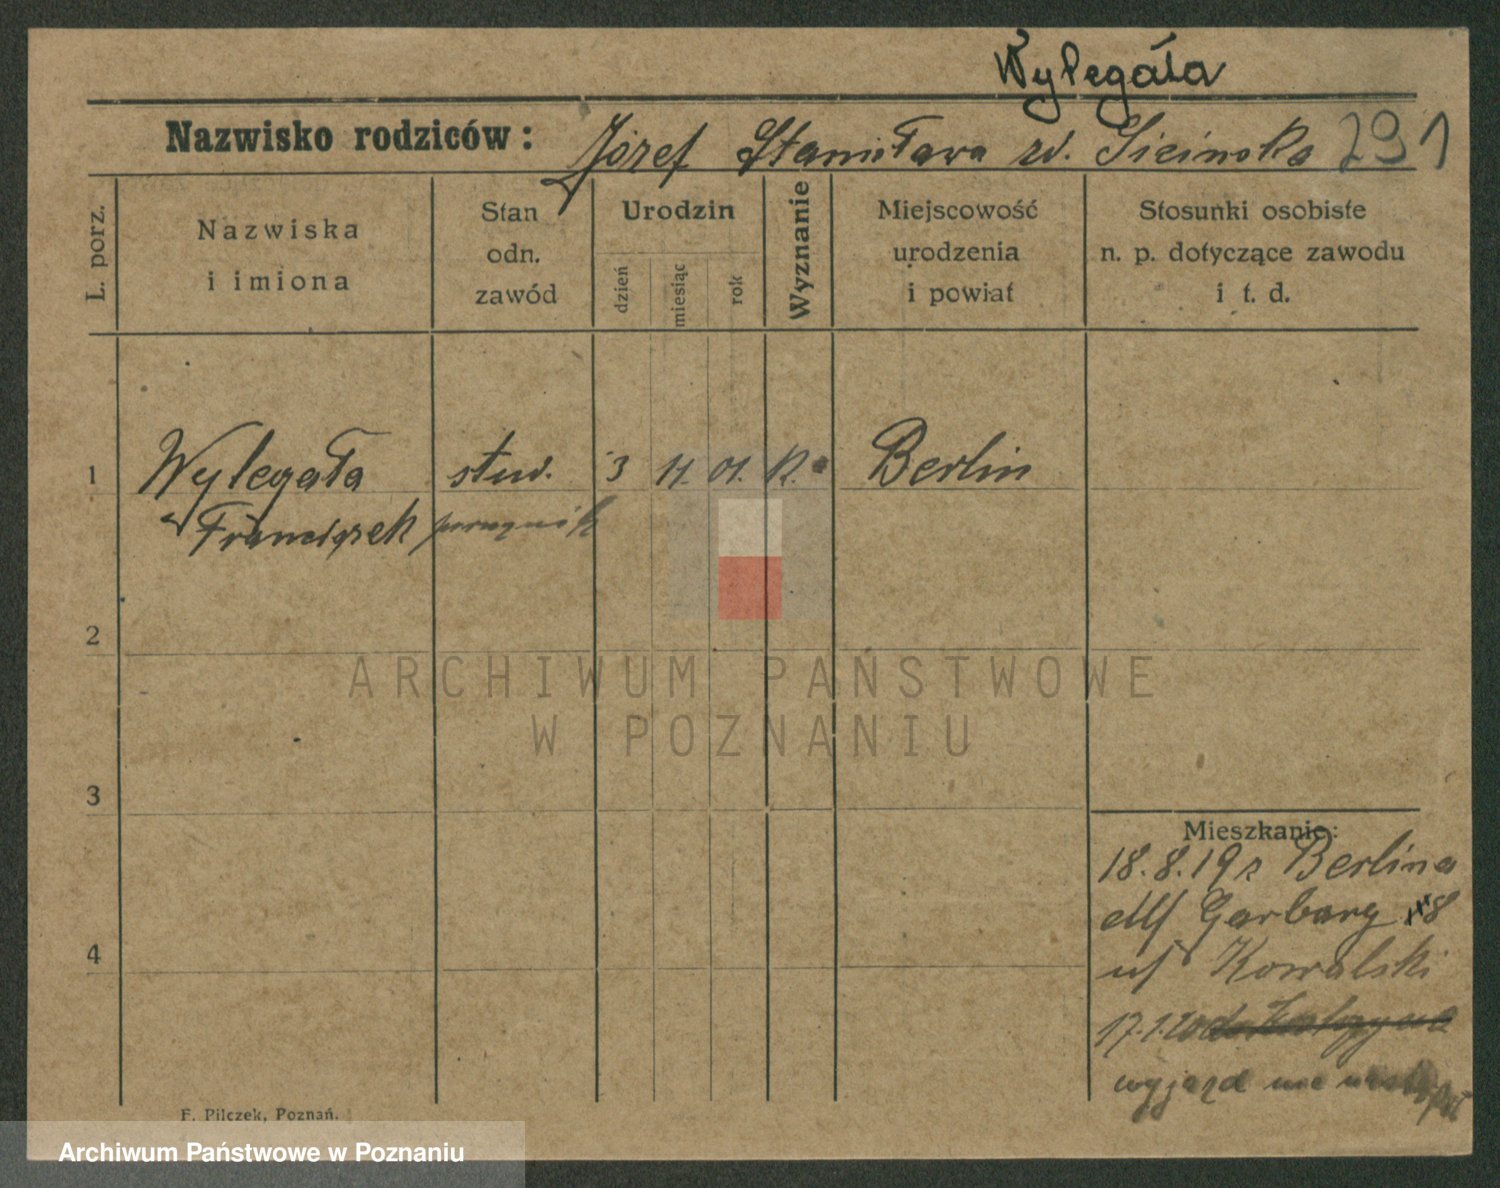 Wylegała
Nazwisko rodziców: Józef Stanisława zd. Sicińska 291
L. porz.
Nazwiska
i imiona
Stan
odn.
zawód
Urodzin
dzień
miesiąc
rok
Wyznanie
Miejscowość
urodzenia
i powiat
Stosunki osobiste
n. p. dotyczące zawodu
i t. d.
1 Wylegała 3 11. 01. Berlin
Franciszek
2
ARCHIWUM PAŃSTWOWE
W POZNANIU
3
Mieszkanie:
18.8.19 z Berlina
Garbary 8
Kowalski
4
17.1.20
wyjazd nie
F. Pilczek, Poznań.
Archiwum Państwowe w Poznaniu